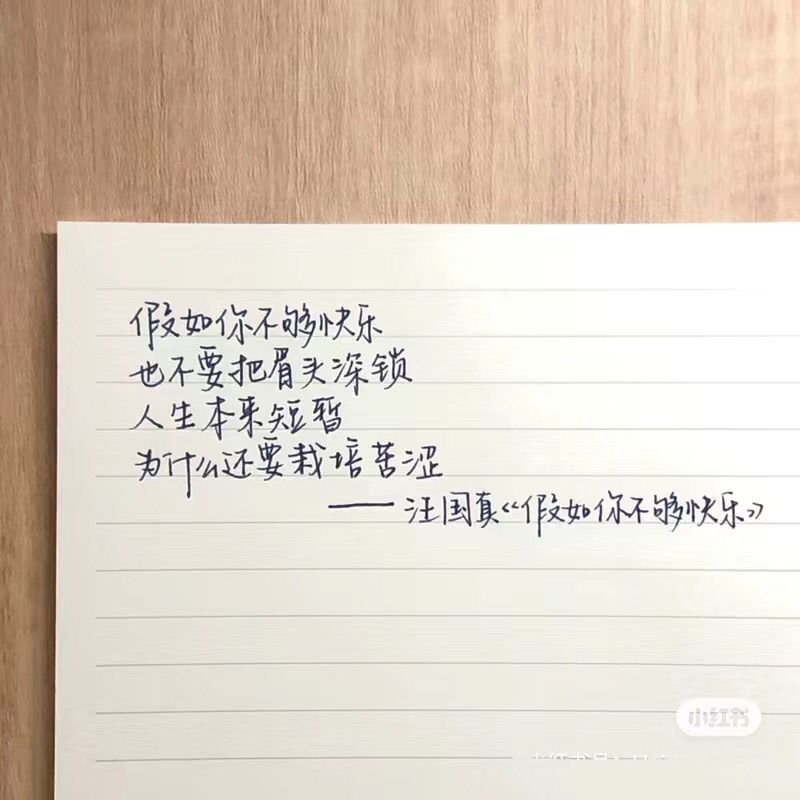 假如你不够快乐
也不要把眉头深锁
人生本来短暂
为什么还要栽培苦涩
——汪国真《假如你不够快乐》
小红书